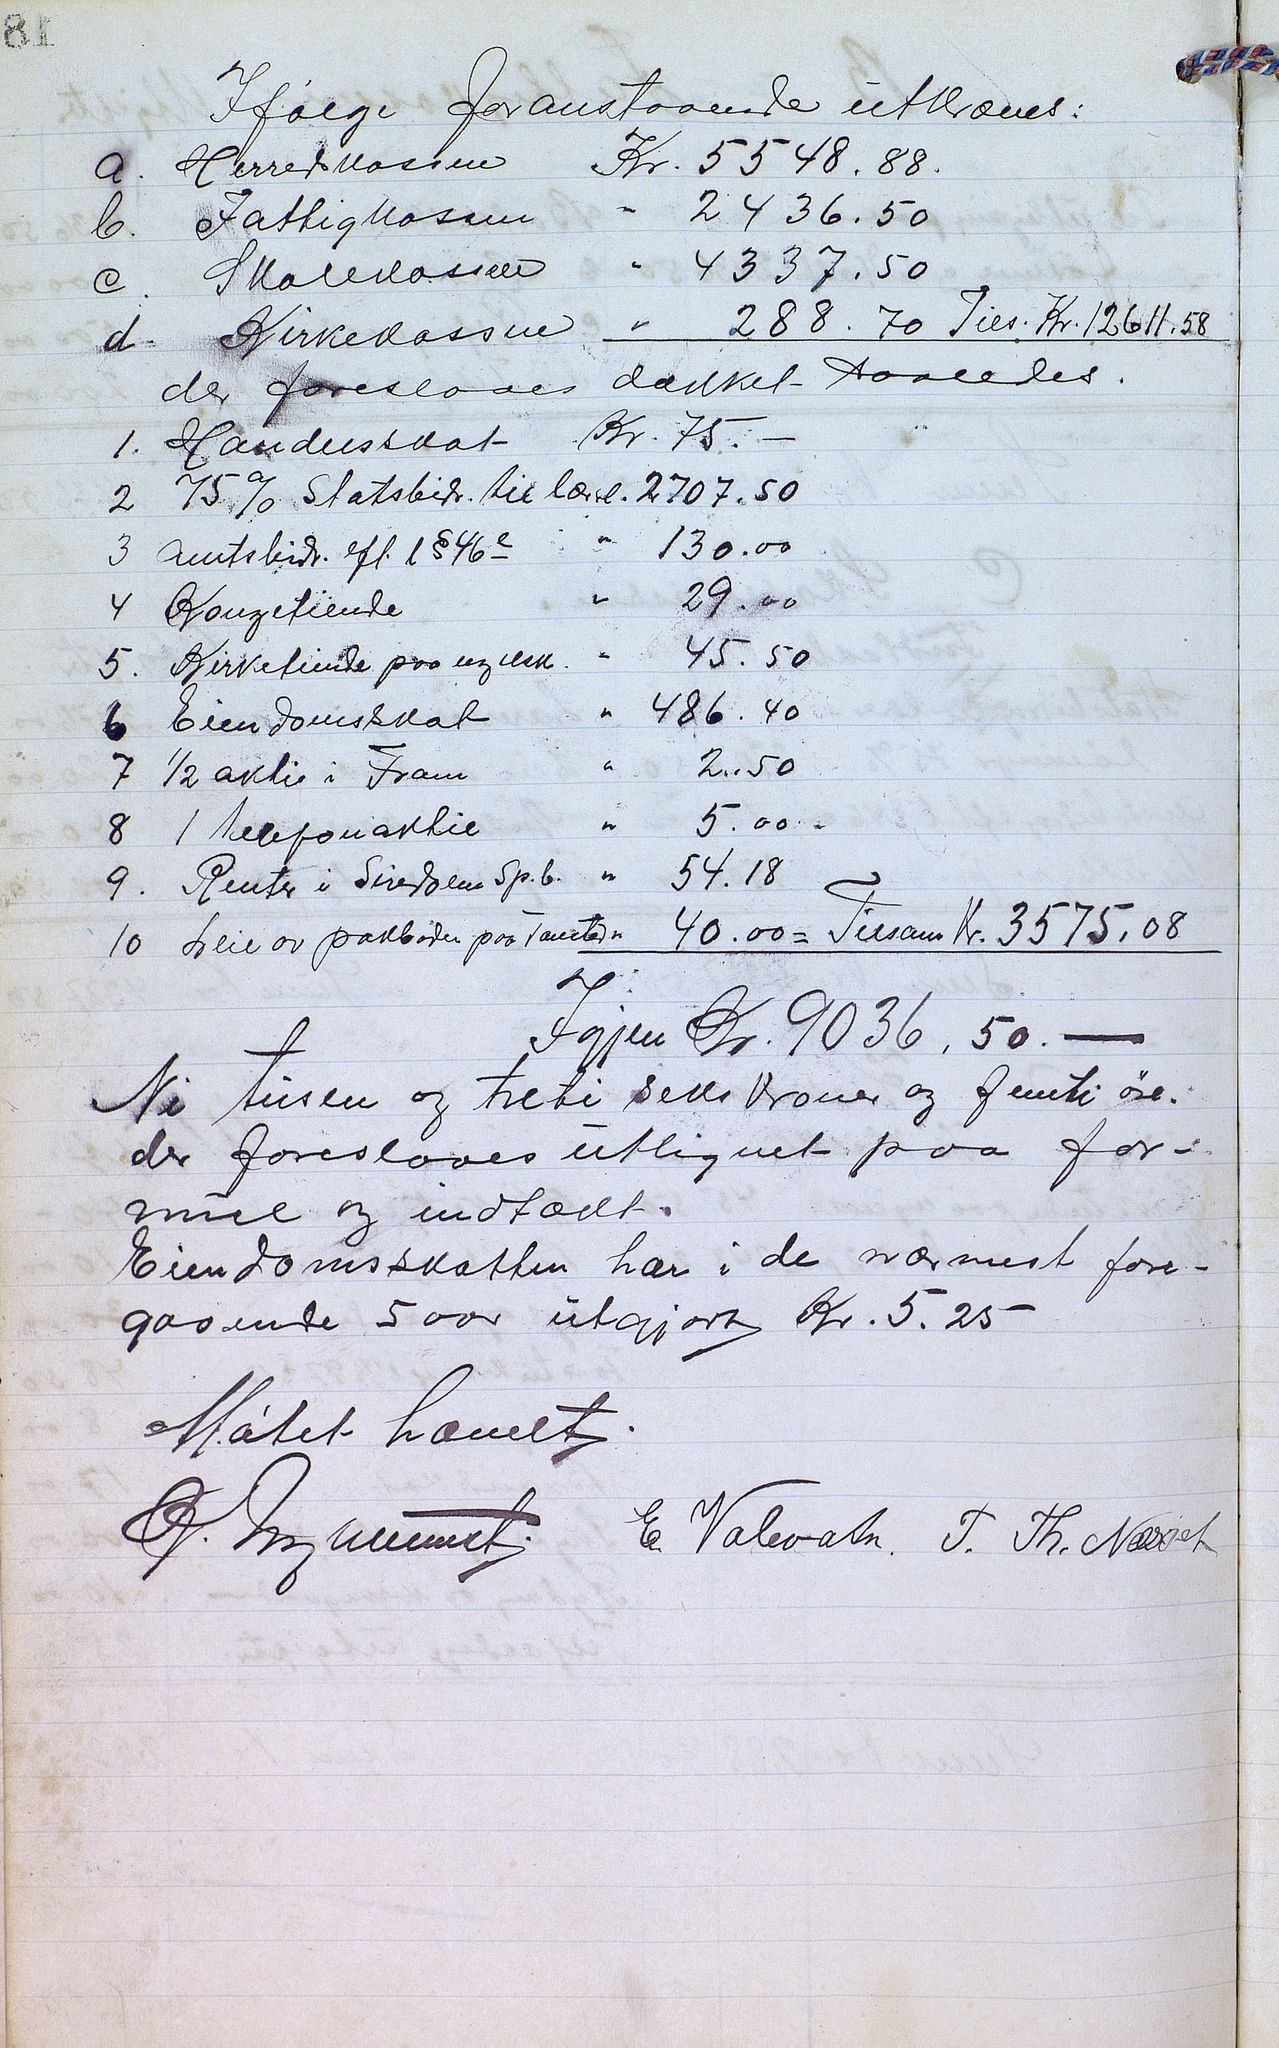 81
Ifølge foranstaaende utkræves:
a. Herredskassen Kr. 5548.88.
b. Fattigkassen " 2436.50
c. Skolekassen " 4337.50
d. Kirkekassen " 288.70 Tils. Kr. 12611.58
der foreslaaes dækket saaledes.
1. Handelsskat Kr. 75.—
2 75% Statsbidr. til lærel. 2707.50
3 Amtsbidr. efl. l § 46e " 130.00
4 Kongetiende " 29.00
5. Kirketiende paa " 45.50
6 Eiendomsskat " 486.40
7 1/2 aktie i Fram " 2.50
8 1 telefonaktie " 5.00.
9. Renter i Siredalens Sp.b. " 54.18
10 Leie av pakboden paa Tonstad " 40.00 = Tilsam Kr. 3575.08
Igjen Kr. 9036,50.—
Ni tusen og treti seks kroner og femti øre.
der foreslaaes utlignet paa for-
mue og indtækt.
Eiendomsskatten har i de nærmest fore-
gaaende 5 aar utgjort Kr. 5.25
Møtet hævet.
E. Valevatn. T. Th.